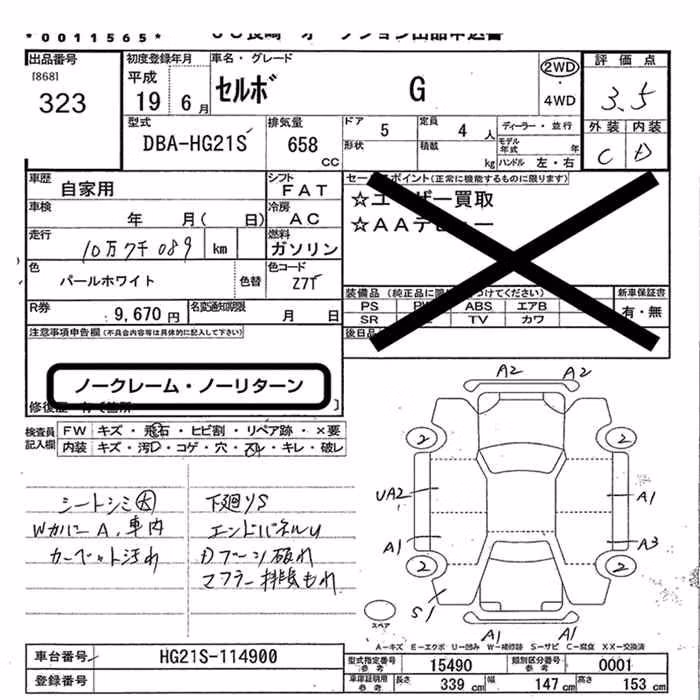 *0011565*
出品番号
[868]
323
初度登録年月
平成
19 6月
車名・グレード
セルボ G
2WD
・
4WD
評価点
3.5
外装 内装
C D
型式
DBA-HG21S
排気量
658
CC
ドア 5
形状
定員 4 人
積載 kg
ディーラー・並行
モデル年式 年
ハンドル 左・右
車歴
自家用
シフト
FAT
車検 年 月( 日)
冷房
AC
走行
10万7千089 km
燃料
ガソリン
色
パールホワイト
色替
色コード
Z7T
R券
9,670円
名変通知期限 月 日
注意事項申告欄(不具合内容等は具体的に記入して下さい)
ノークレーム・ノーリターン
(正常に機能するものに限ります)
装備品
PS ABS エアB
SR TV カワ
新車保証書
有・無
検査員記入欄
FW キズ・飛石・ヒビ割・リペア跡・×要
内装 キズ・汚D・コゲ・穴・ス・キレ・破レ
シートシミ大
Wカバー A、車内
カーペット汚れ
下廻りS
エンドパネルU
Dブーツ破れ
マフラー排気もれ
A2 A2
2 2
UA2 A1
A1 A3
2 2
S1
A1 A1
スペア
A－キズ E－エクボ U－凹み W－補修跡 S－サビ C－腐食 XX－交換済
車台番号 HG21S-114900
登録番号
型式指定番号参考 15490 類別区分番号参考 0001
車庫証明用参考 長さ 339cm 幅 147cm 高さ 153cm